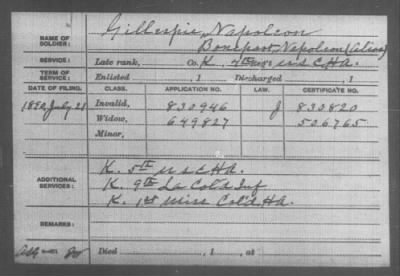 NAME OF SOLDIER: Gillespie, Napoleon
Bonepart, Napoleon (Alias)
SERVICE: Late rank, Co. K, Reg't U S C H A.
TERM OF SERVICE: Enlisted , 1 Discharged , 1
DATE OF FILING. CLASS. APPLICATION NO. LAW. CERTIFICATE NO.
1890, July 21 Invalid, 830946 J 830820
Widow, 649827 506765
Minor,
ADDITIONAL SERVICES: K. 5th U S C H A.
K. 9th La Cold Inf
K. 1st Miss Cold. H.A.
REMARKS:
Died , 1 , at